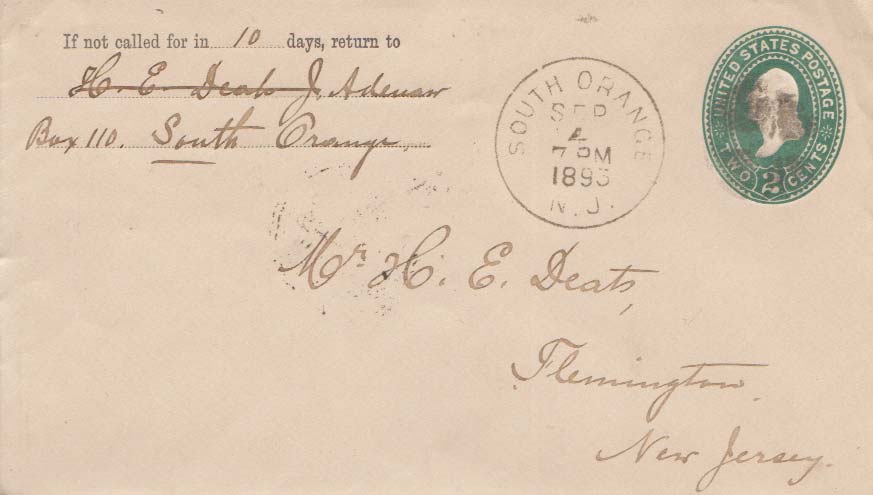 If not called for in 10 days, return to
H. E. Deats J. Adenaw
Box 110. South Orange,
SOUTH ORANGE
SEP
4
7 PM
1893
N.J.
UNITED STATES POSTAGE
TWO 2 CENTS
Mr. H. E. Deats,
Flemington
New Jersey.